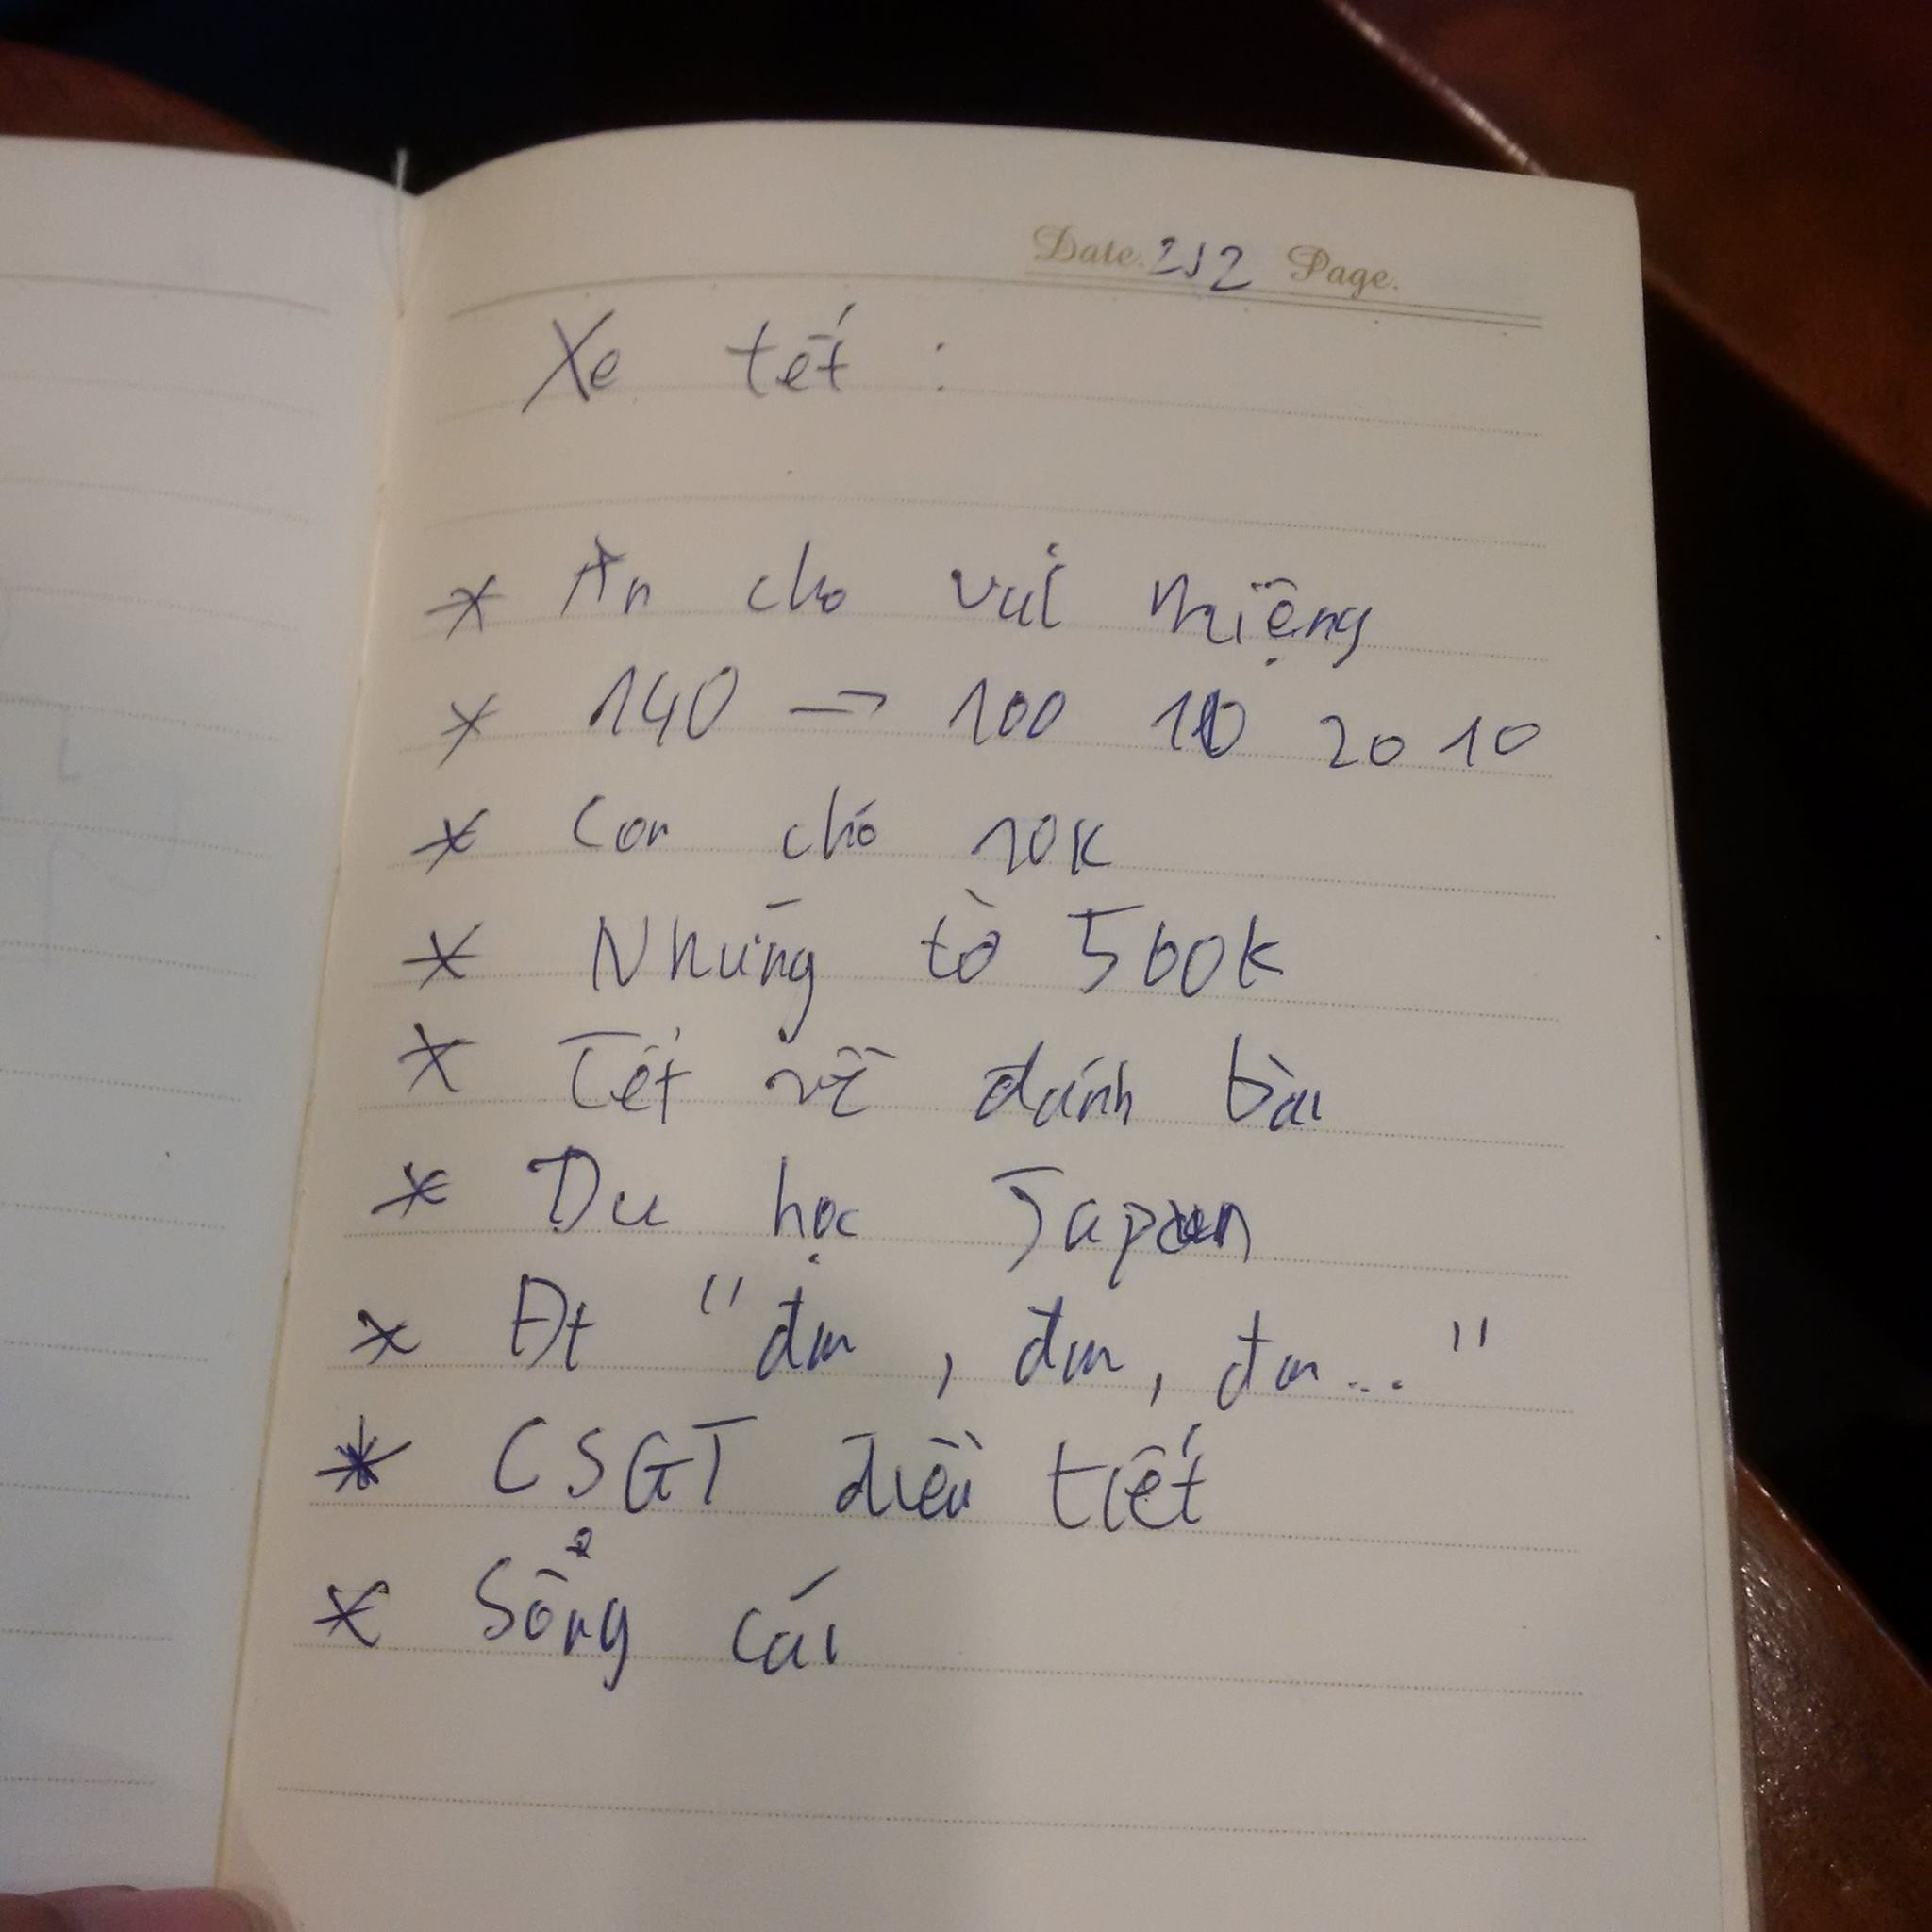 Date. 2/2 Page.
Xe tết :
* Ăn cho vui miệng
* 140 → 100 10 20 10
* Con chó 10K
* Những tờ 500k
* Tết về đánh bài
* Du học Japan
* Đt "đm, đm, đm..."
* CSGT điều tiết
* Sổng cái